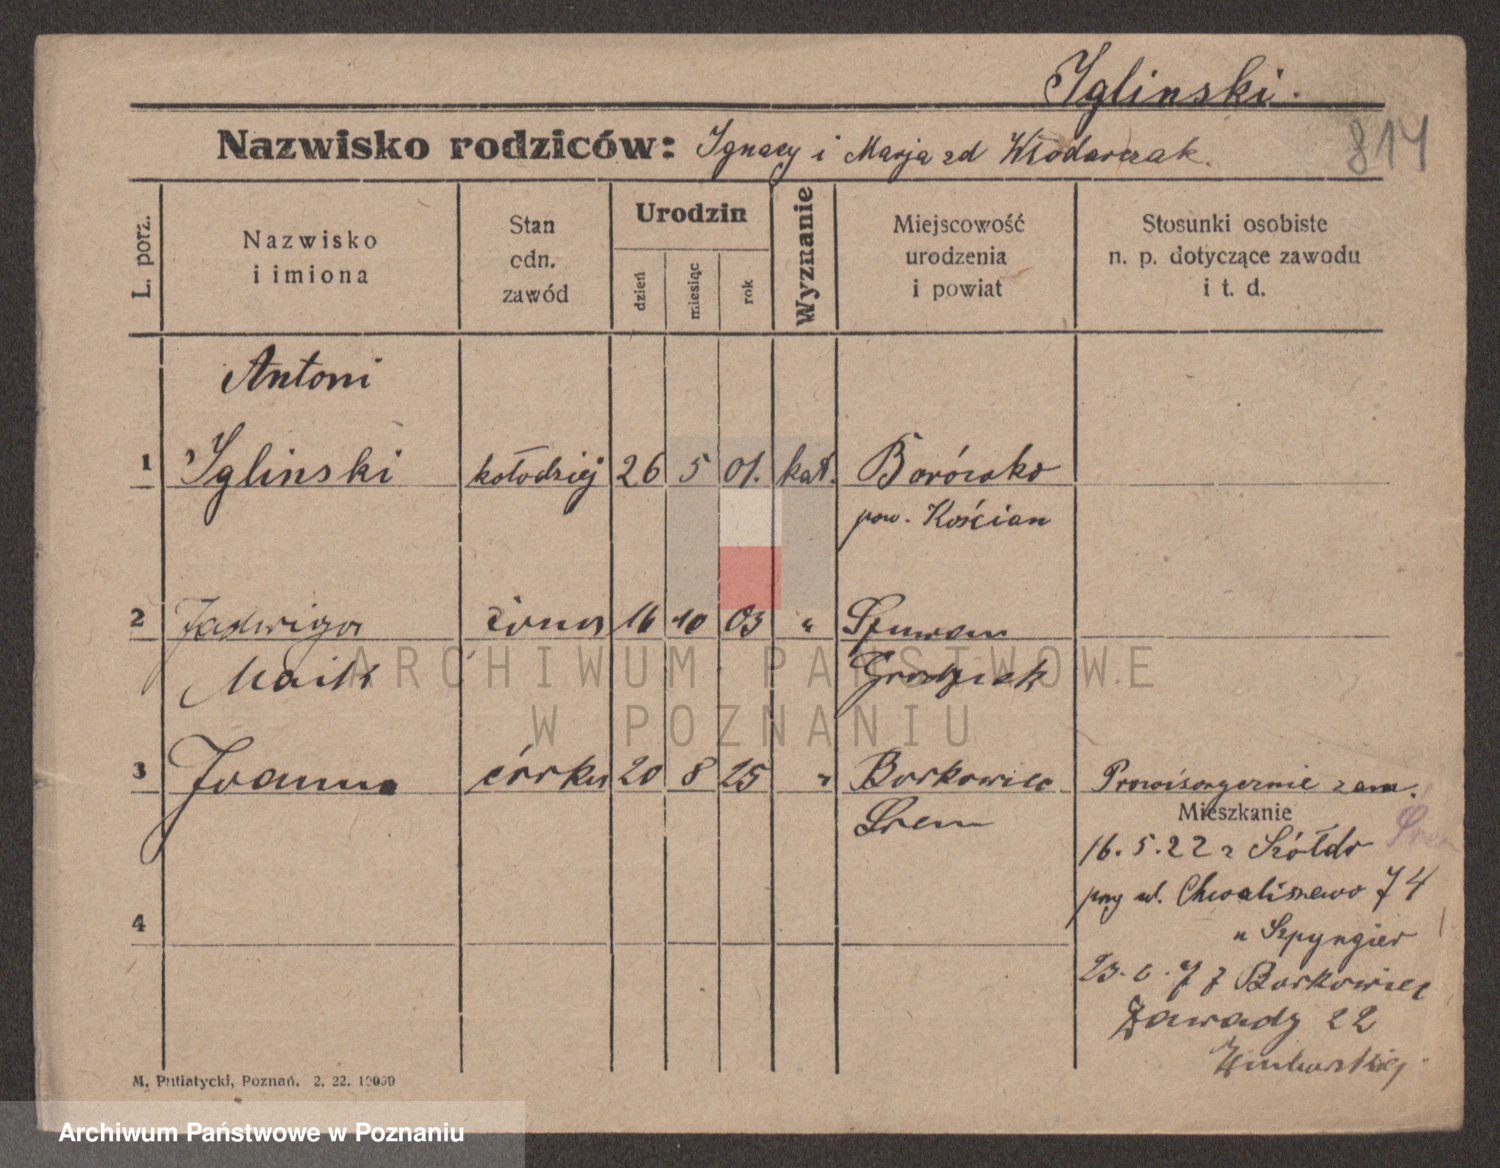 Iglinski.
Nazwisko rodziców: Ignacy i Marja zd Włodarczak.
814
L. porz.
Nazwisko
i imiona
Stan
cdn.
zawód
Urodzin
dzień
miesiąc
rok
Wyznanie
Miejscowość
urodzenia
i powiat
Stosunki osobiste
n. p. dotyczące zawodu
i t. d.
Antoni
1 Iglinski kołodziej 26 5 01. kat. Borówko
pow. Kościan
2 Jadwiga żona 16 10 03 "
Maik Grodzisk
3 Joanna córka 20 8 25 " Borkowiec Prowisorycznie zam.
Śrem
Mieszkanie
Śrem
16. 5. 22 z Szółdr
przy ul. Chwaliszewo 74
u Szpyngier
4
23. 7 z Borkowiec
Zawady 22
M. Putiatycki, Poznań. 2. 22. 10000
ARCHIWUM PAŃSTWOWE
W POZNANIU
Archiwum Państwowe w Poznaniu